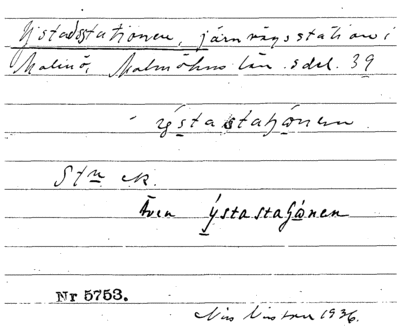 Ystadsstationen, järnvägsstation i
Malmö, Malmöhus län. sdel. 39
ýstastaʃωnen
Stn ek.
Även ýstastaʃωnen
Nr 5753.
1936.